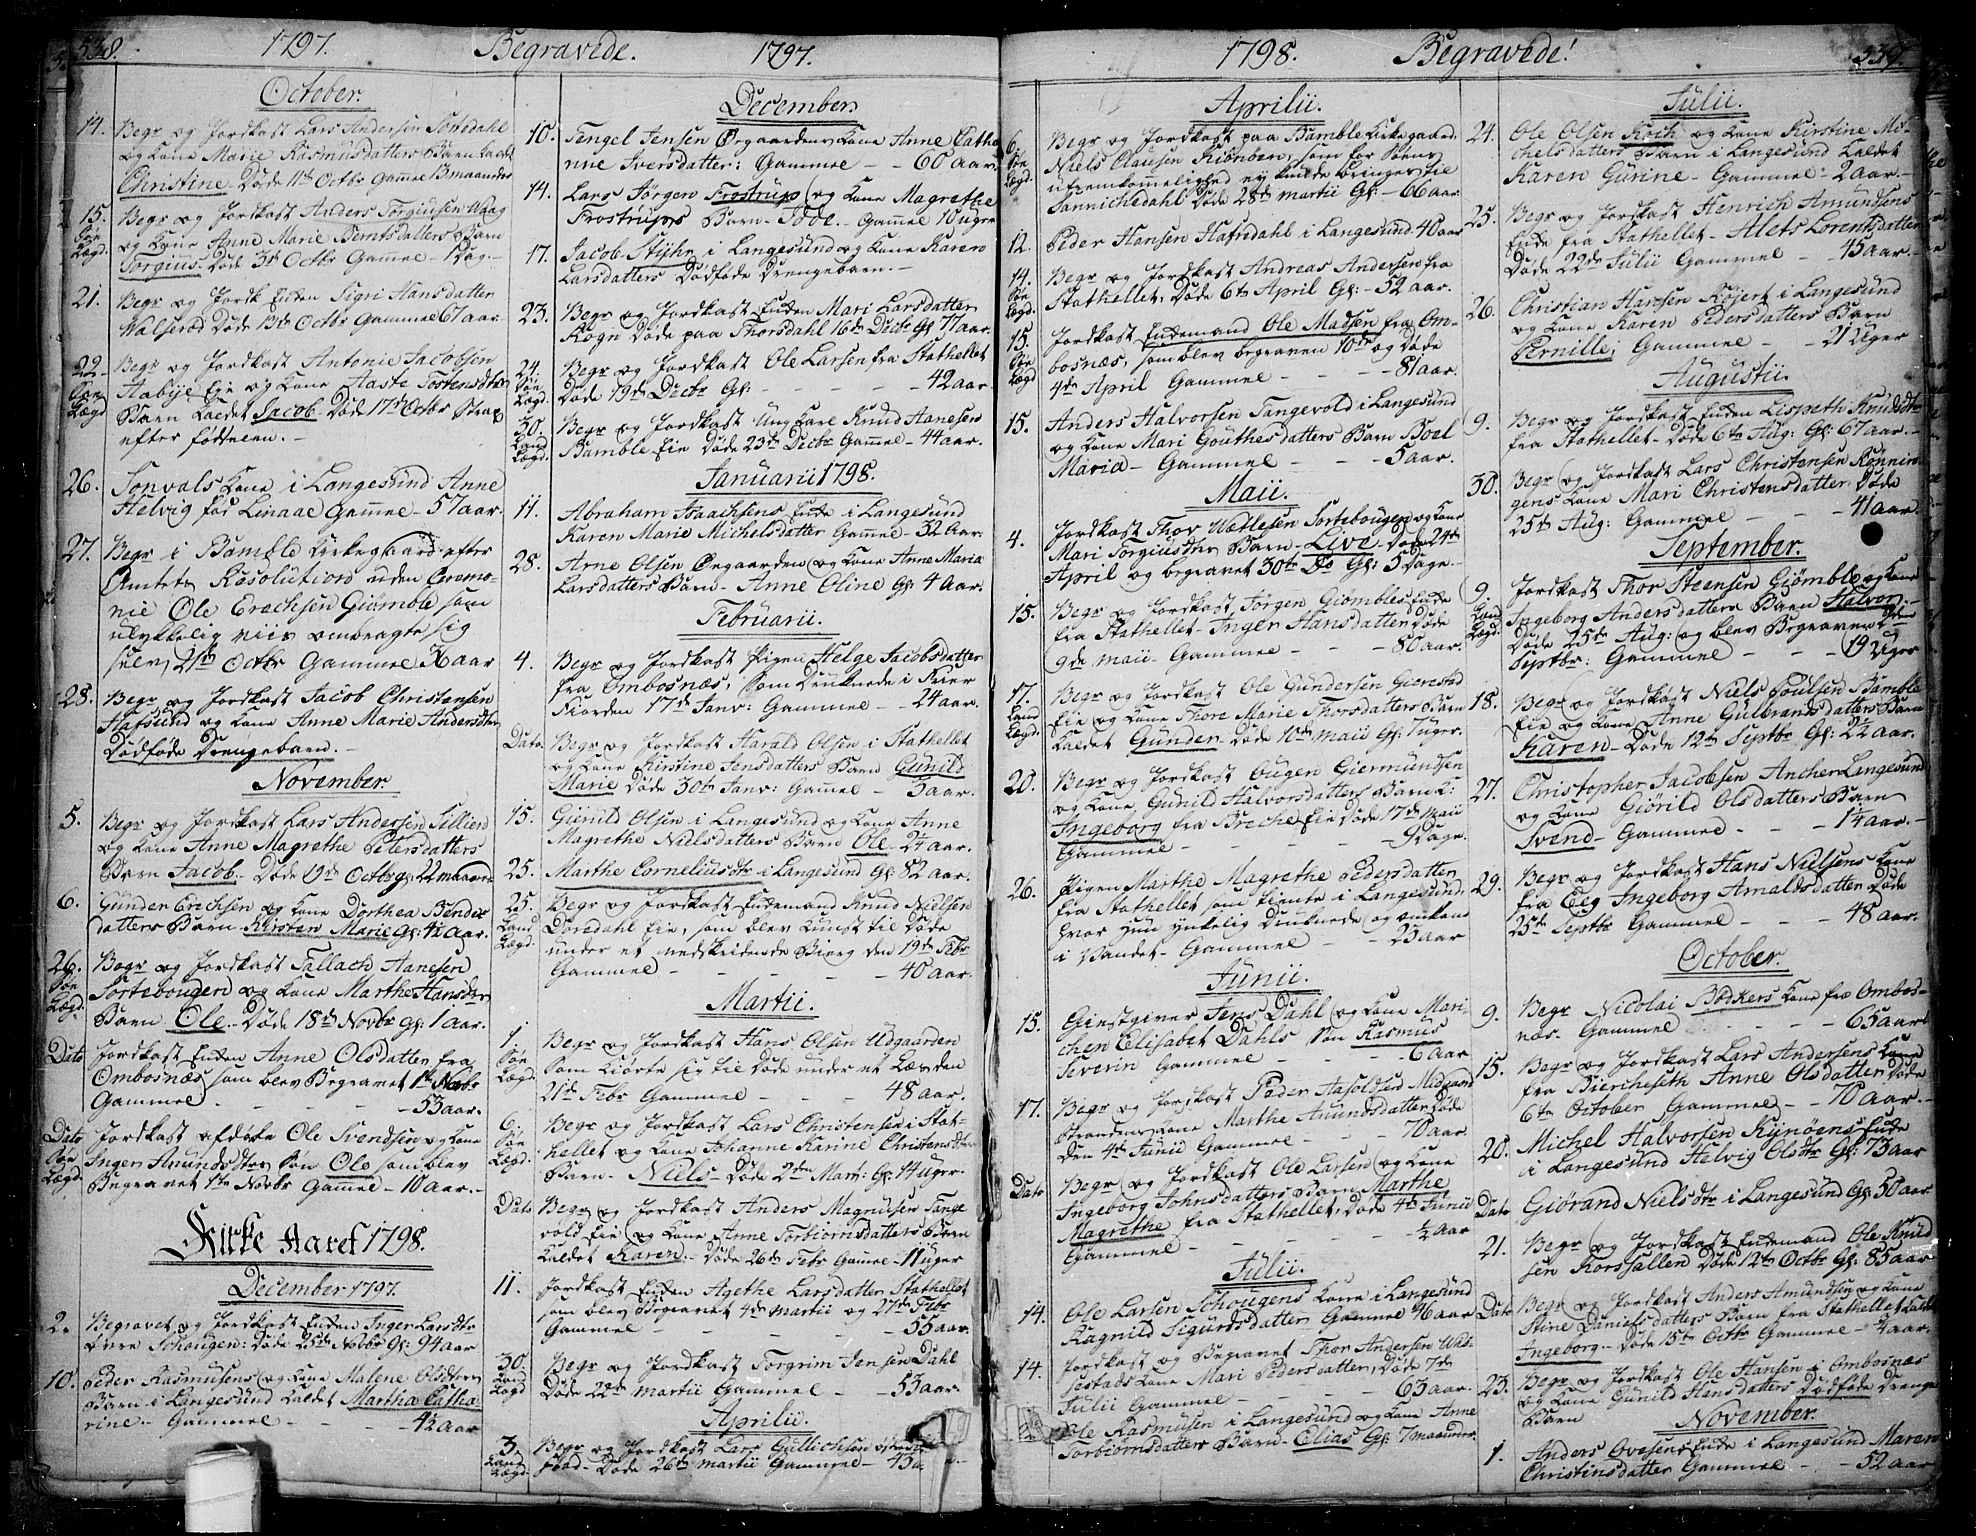 538.
1797. Begravede. 1797.
October.
14. Begr og Jordkast Lars Andersen
og Kone Marie Rasmusdatters Barn kaldt
Christine Døde 11te Octbr Gamel 13 maaneder
15. Begr og Jordkast Anders Torgiusen Waag
Søe og Kone Anne Marie Berntsdatters Barn
Lægd. Torgius. Døde 3de Octbr Gammel - 1 Dag.
21. Begr og Jordk Enken Sigri Hansdatter
Walserød Døde 13de Octbr Gammel 67 aar.
22. Begr og Jordkast Antonie Jacobsen
Søe Aabye Eie og Kone Aaste Torstensdtrs
Lægd Barn kaldet Jacob Døde 17de Octbr Strax
efter fødselen.
26. Kone i Langesund Anne
Helvig fød Linaae Gamel - 57 aar.
27. Begr i Bamble Kirkegaard efter
Amtets Resolution uden Ceremo-
nie Ole Erichsen Giømble som
ulykkelig viis ombragte sig
selv, 21de Octbr Gammel 36 aar
28. Begr og Jordkast Jacob Christensen
Hafsund og Kone Anne Marie Andersdtrs
Dødføde Drengebarn.
November.
5. Begr og Jordkast Lars Andersen Tillien
og Kone Anne Magrethe Petersdatters
Barn Jacob. Døde 19de Octbr g: 22 maaneder
6. Gunder Erichsen og Kone Dorthea Bendix
datters Barn Kirsten Marie G: 4½ Aar.
26. Begr og Jordkast Tallach Aanesen
Søe Sortebougen og Kone Marthe Hansdtrs
Lægd. Barn Ole. Døde 18de Novbr G: 1 Aar.
Dato Jordkast Enken Anne Olsdatter fra
Ombosnæs som blev Begravet 1te Novbr
Gammel - - - 53 aar.
Dato Jordkast afdøde Ole Svendsen og Kone
Søe Inger Amundsdtrs Søn Ole som blev
Lægd. Begravet 1te Novbr Gammel - 10 aar.
Kirke Aaret 1798.
December 1797.
2. Begravet og Jordkast Enken Inger Larsdtr
øvre Schougen: Døde 25de Novbr G: 94 aar
10. Peder Rasmusens og Kone Malene Olsdtrs
Barn i Langesund kaldet Martha Catha-
rine - Gammel - - 4½ Aar
December
10. Tengel Jensen Ørgaardens Kone Anne Catha
rine Iversdatter: Gammel - - 60 Aar.
14. Lars Jørgen Frostrups og Kone Magrethe
Frostrups Barn - - Gamel 10 uger
17. Jacob Styhr i Langesund og Kone Karen
Larsdatters Dødføde Drengebarn.
23. Begr og Jordkast Enken Mari Larsdatter
Rogn Døde paa Thorsdahl 16de Decbr G: 71 aar.
24. Begr og Jordkast Ole Larsen fra Stathellet
Søe Døde 19de Decbr G: - - - 42 aar.
Lægd.
30. Begr og Jordkast Ung Karl Knud Aanesen
Land Bamble Eie Døde 23de Decbr Gammel - 44 aar.
Lægd.
Januarii 1798.
11. Abraham Isaachsens Enke i Langesund
Karen Marie Michelsdatter Gammel - 32 Aar.
28. Arne Olsen Ørgaarden og Kone Anne Maria
Larsdatters Barn - Anne Oline G: 4 Aar.
Februarii.
4. Begr og Jordkast Pigen Helge Jacobsdatter
fra Ombosnæs, som Druknede i Frier
Fiorden 17de Janv: Gammel - - 24 aar.
Dato. Begr og Jordkast Harald Olsen i Stathellet
og Kone Kirstine Jensdatters Barn Gunild
Marie Døde 30te Janv: Gamel - 3 aar.
15. Gunild Olsen i Langesund og Kone Anne
Magrethe Nielsdatters Barn Ole - 2¼ Aar.
25. Marthe Corneliusdtr i Langesund G: 82 aar.
25. Begr og Jordkast Enkemand Knud Nielsen
Land Dorsdahl Eie, som blev kunst til Døde
Lægd. under et nedskridende Bierg den 19de Febr
Gammel - - - - 40 aar.
Martii.
1. Begr og Jordkast Hans Olsen Udgaarden
Søe som kiørte sig til Døde under et Læs den
Lægd 21de Febr Gammel - - - 48 aar.
6. Begr og Jordkast Lars Christensen i Stat-
Søe hellet og Kone Johanne Karine Christensdtrs
Lægd. Barn - Niels - Døde 2den Mart: G: 14 uger.
Dato Begr og Jordkast Anders Magnusen Tange
vold Eie og Kone Anne Torbiørnsdatters Barn
kaldet Karen. Døde 26de Febr Gamel - 11 uger
11. Jordkast Enken Agethe Larsdatter Stathellet
som blev Begravet 4de Martii og 27de Febr
Gammel - - - - 55 aar.
30. Begr og Jordkast Torgrim Jensen Dahl
Land Døde 22de martii Gammel - - 53 aar.
Lægd
Aprilii.
3. Begr og Jordkast Lars Gullichsen
Land Døde 26de martii Gammel - 43
Lægd.
1798. Begravede! 539.
Aprilii.
6. Begr og Jordkast paa Bamble Kirkegaard
Søe Niels Clausen Kiønøen, som for Søens
Lægd. ufremkommelighed ey kunde bringes til
Sannichedahl Døde 28de martii G: - 66 aar.
12. Peder Hansen Hafredahl i Langesund. 40 aar
14. Begr og Jordkast Andreas Andersen fra
Søe Stathellet. Døde 6te April G: - 52 aar.
Lægd.
15. Jordkast Enkemand Ole Madsen fra Om-
Søe bosnæs, som blev begraven 10de og Døde
Lægd 4de April Gammel - - - 81 aar.
15. Anders Halvorsen Tangevold i Langesund
og Kone Mari Gouthesdatters Barn Boel
Maria - Gammel - - - 5 aar.
Maii.
4. Jordkast Thor Wetlesen Sortebougen og Kone
Mari Torgiusdtrs Barn - Live - Døde 24de
April og begravet 30te Do G: 5 Dage.
15. Begr og Jordkast Jørgen Giømbles Enke
fra Stathellet - Inger Hansdatter Døde
9de Maii - Gammel - - - 80 aar.
17. Begr og Jordkast Ole Gundersen
Land Eie og Kone Thore Marie Thorsdatters Barn
Lægd. kaldet Gunder - Døde 10de Maii G: 7 uger.
20. Begr og Jordkast Ougen Giermundsen
og Kone Gunild Halvorsdatters Barn K:
Ingeborg fra Breche Eie Døde 17de Maii
Gammel - - - 9 Dage.
26. Pigen Marthe Magrethe Pedersdatter
fra Stathellet som tiente i Langesund.
hvor hun ynkelig Druknede og omkom
i Vandet - Gammel - - 23 aar
Junii.
15. Giestgiver Jens Dahl og Kone Mari-
chen Elisabet Dahls Søn Rasmus
Severin Gammel - - - 6 Aar
17. Begr og Jordkast Peder Aasoldsen Midgaard
Strandens Kone Marthe Amundsdatter Døde
den 4de Junii Gammel - - - 70 aar.
Dato Begr og Jordkast Ole Larsen og Kone
Ingeborg Johnsdatters Barn Marthe
Magrethe fra Stathellet, Døde 4de Junii
Gammel - - - ½ Aar
Julii.
14. Ole Larsen Schougens Kone i Langesund
Ragnild Sigursdatter Gammel 46 Aar
14. Jordkast og Begravet Thor Andersen Wid-
sestads Kone Mari Pedersdatter, Døde 7de
Julii Gammel - - - 63 aar.
Ole Rasmusen i Langesund og Kone Anne
Torbiørnsdatters Barn - Elias G: 7 maaneder.
Julii.
24. Ole Olsen Koch og Kone Kirstine Mi-
chelsdatters Barn i Langesund kaldet
Karen Gurine - Gammel - 2 Aar.
25. Begr og Jordkast Henrich Amundsens
Enke fra Stathellet - Alets Lorentsdatter
Døde 22de Julii Gammel - 45 aar.
26. Christian Hansen Røjert i Langesund
og Kone Karen Pedersdatters Barn
Pernille, Gammel - - 21 Uger
Augustii.
9. Begr og Jordkast Enken Lispeth Knudsdtr
fra Stathellet - Døde 6te Aug: G: 67 aar.
30. Begr og Jordkast Lars Christensen Rønnin-
gens Kone Mari Christensdatter Døde
25de Aug: Gammel - - - 41 aar.
September.
9. Jordkast Thor Steensen Giømble og Kone
Land Ingeborg Andersdatters Barn Halvor.
Lægd. Døde 25de Aug: og blev Begraven 2den
Septbr: Gammel - - 19 Uger
18. Begr og Jordkast Niels Poulsen Bamble
Eie og Kone Anne Gulbrandsdatters Barn
Karen - Døde 12te Septbr G: 2½ aar.
27. Christopher Jacobsen Ancher Langesund
og Kone Giørild Olsdatters Barn
Svend - Gammel - - - 1¼ aar.
29. Begr og Jordkast Hans Nielsens Kone
fra Eeg Ingeborg Arnaldsdatter Døde
25de Septbr Gammel - - 48 aar.
October.
9. Begr Nicolai Bødkers Kone fra Ombos-
næs. Gammel - - - 65 aar
15. Begr og Jordkast Lars Andersens Kone
fra Biercheseth Anne Olsdatter Døde
6te October Gammel - - 70 aar.
20. Michel Halvorsen Kynøens Enke
i Langesund Helvig Olsdtr G: 73 aar
Dato Giørand Nielsdtr i Langesund G: 50 aar.
21. Begr og Jordkast Enkemand Ole Knud
sen Korsfallen Døde 12te Octbr G: 85 aar.
Dato Begr og Jordkast Anders Amundsen og Kone
Stine Danielsdatters Barn fra Stathellet kaldt
Ingeborg - Døde 15te Octbr Gammel - 4 aar.
23. Begr og Jordkast Ole Hansen i Ombosnæs
og Kone Gunild Hansdatters Dødføde Drenge
Barn
November.
1. Anders Ovesens Enke i Langesund Maren
Christinsdatter Gammel - - 52 aar